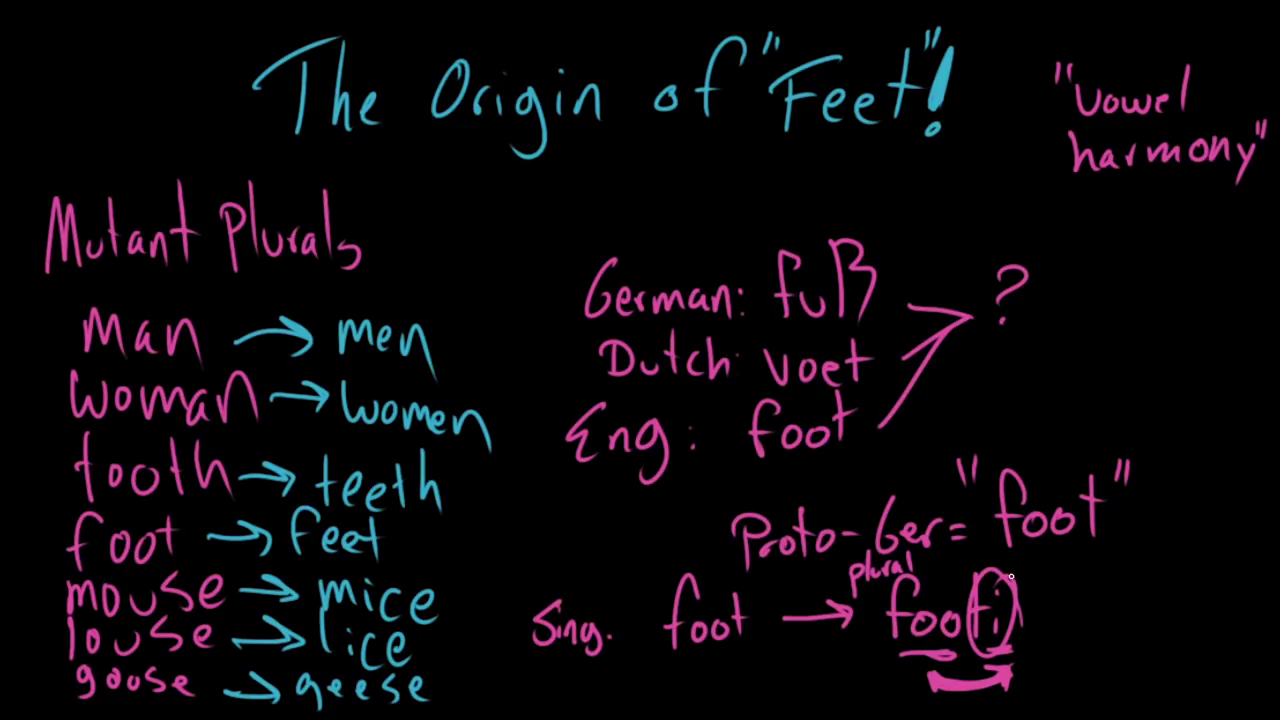 The Origin of "Feet"!
"vowel
harmony"
Mutant Plurals
man → men
woman → women
tooth → teeth
foot → feet
mouse → mice
louse → lice
goose → geese
German: fuß
Dutch: voet
Eng: foot
?
Proto-Ger = "foot"
plural
Sing. foot → footi